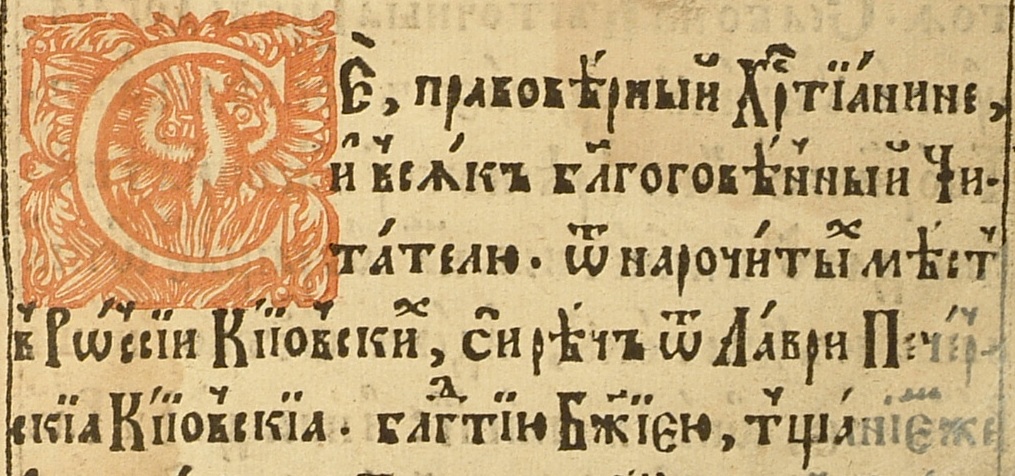 СЀ, правовѣ́рный Хрⷭ҇тїа́нине,
и҆ всѧ́къ бл҃гоговѣ́нный Чи-
та́телю. ѿ нарочи́тыⷯ мѣ́стъ
в Рѡ́ссїи Кї́ѡвскиⷯ, си рѣ́чъ ѿ Ла́ври Пече́р-
скїѧ Кї́ѡвскїѧ. бл҃гⷣтїю Бж҃їею, тща́нїеже